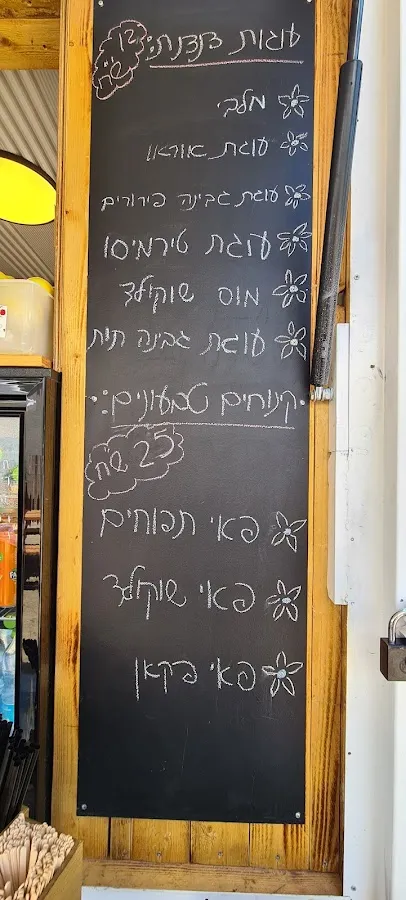 עוגות צנצנת:
12 שח
מלבי
עוגת אוראו
עוגת גבינה פירורים
עוגת טירמיסו
מוס שוקולד
עוגת גבינה תות
קינוחים טבעונים:
25 שח
פאי תפוחים
פאי שוקולד
פאי פקאן